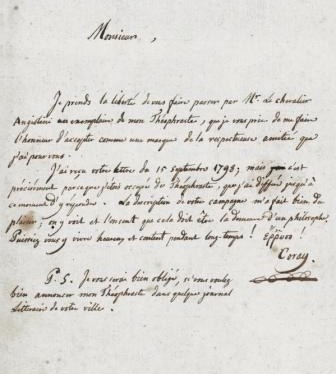 Monsieur,
Je prends la liberté de vous faire passer par Mr. Le chevalier
Angiolini un exemplaire de mon Théophraste, que je vous prie de me faire
l'honneur d'accepter comme une marque de la respectueuse amitié que
j'ai pour vous.
J'ai reçu votre lettre du 15 septembre 1798; mais c'est
précisément parce que j'étois occupé du Théophraste, que j'ai différé jusqu'à
ce moment d'y répondre. La description de votre campagne m'a fait bien du
plaisir; on y voit et l'on sent que cela doit être la demeure d'un philosophe.
Puissiez vous y vivre heureux et content pendant long-temps! Ἔρρωσο!
Coray
P. S. Je vous serai bien obligé, si vous voulez
bien annoncer mon Théophraste dans quelque journal
Littéraire de votre ville.